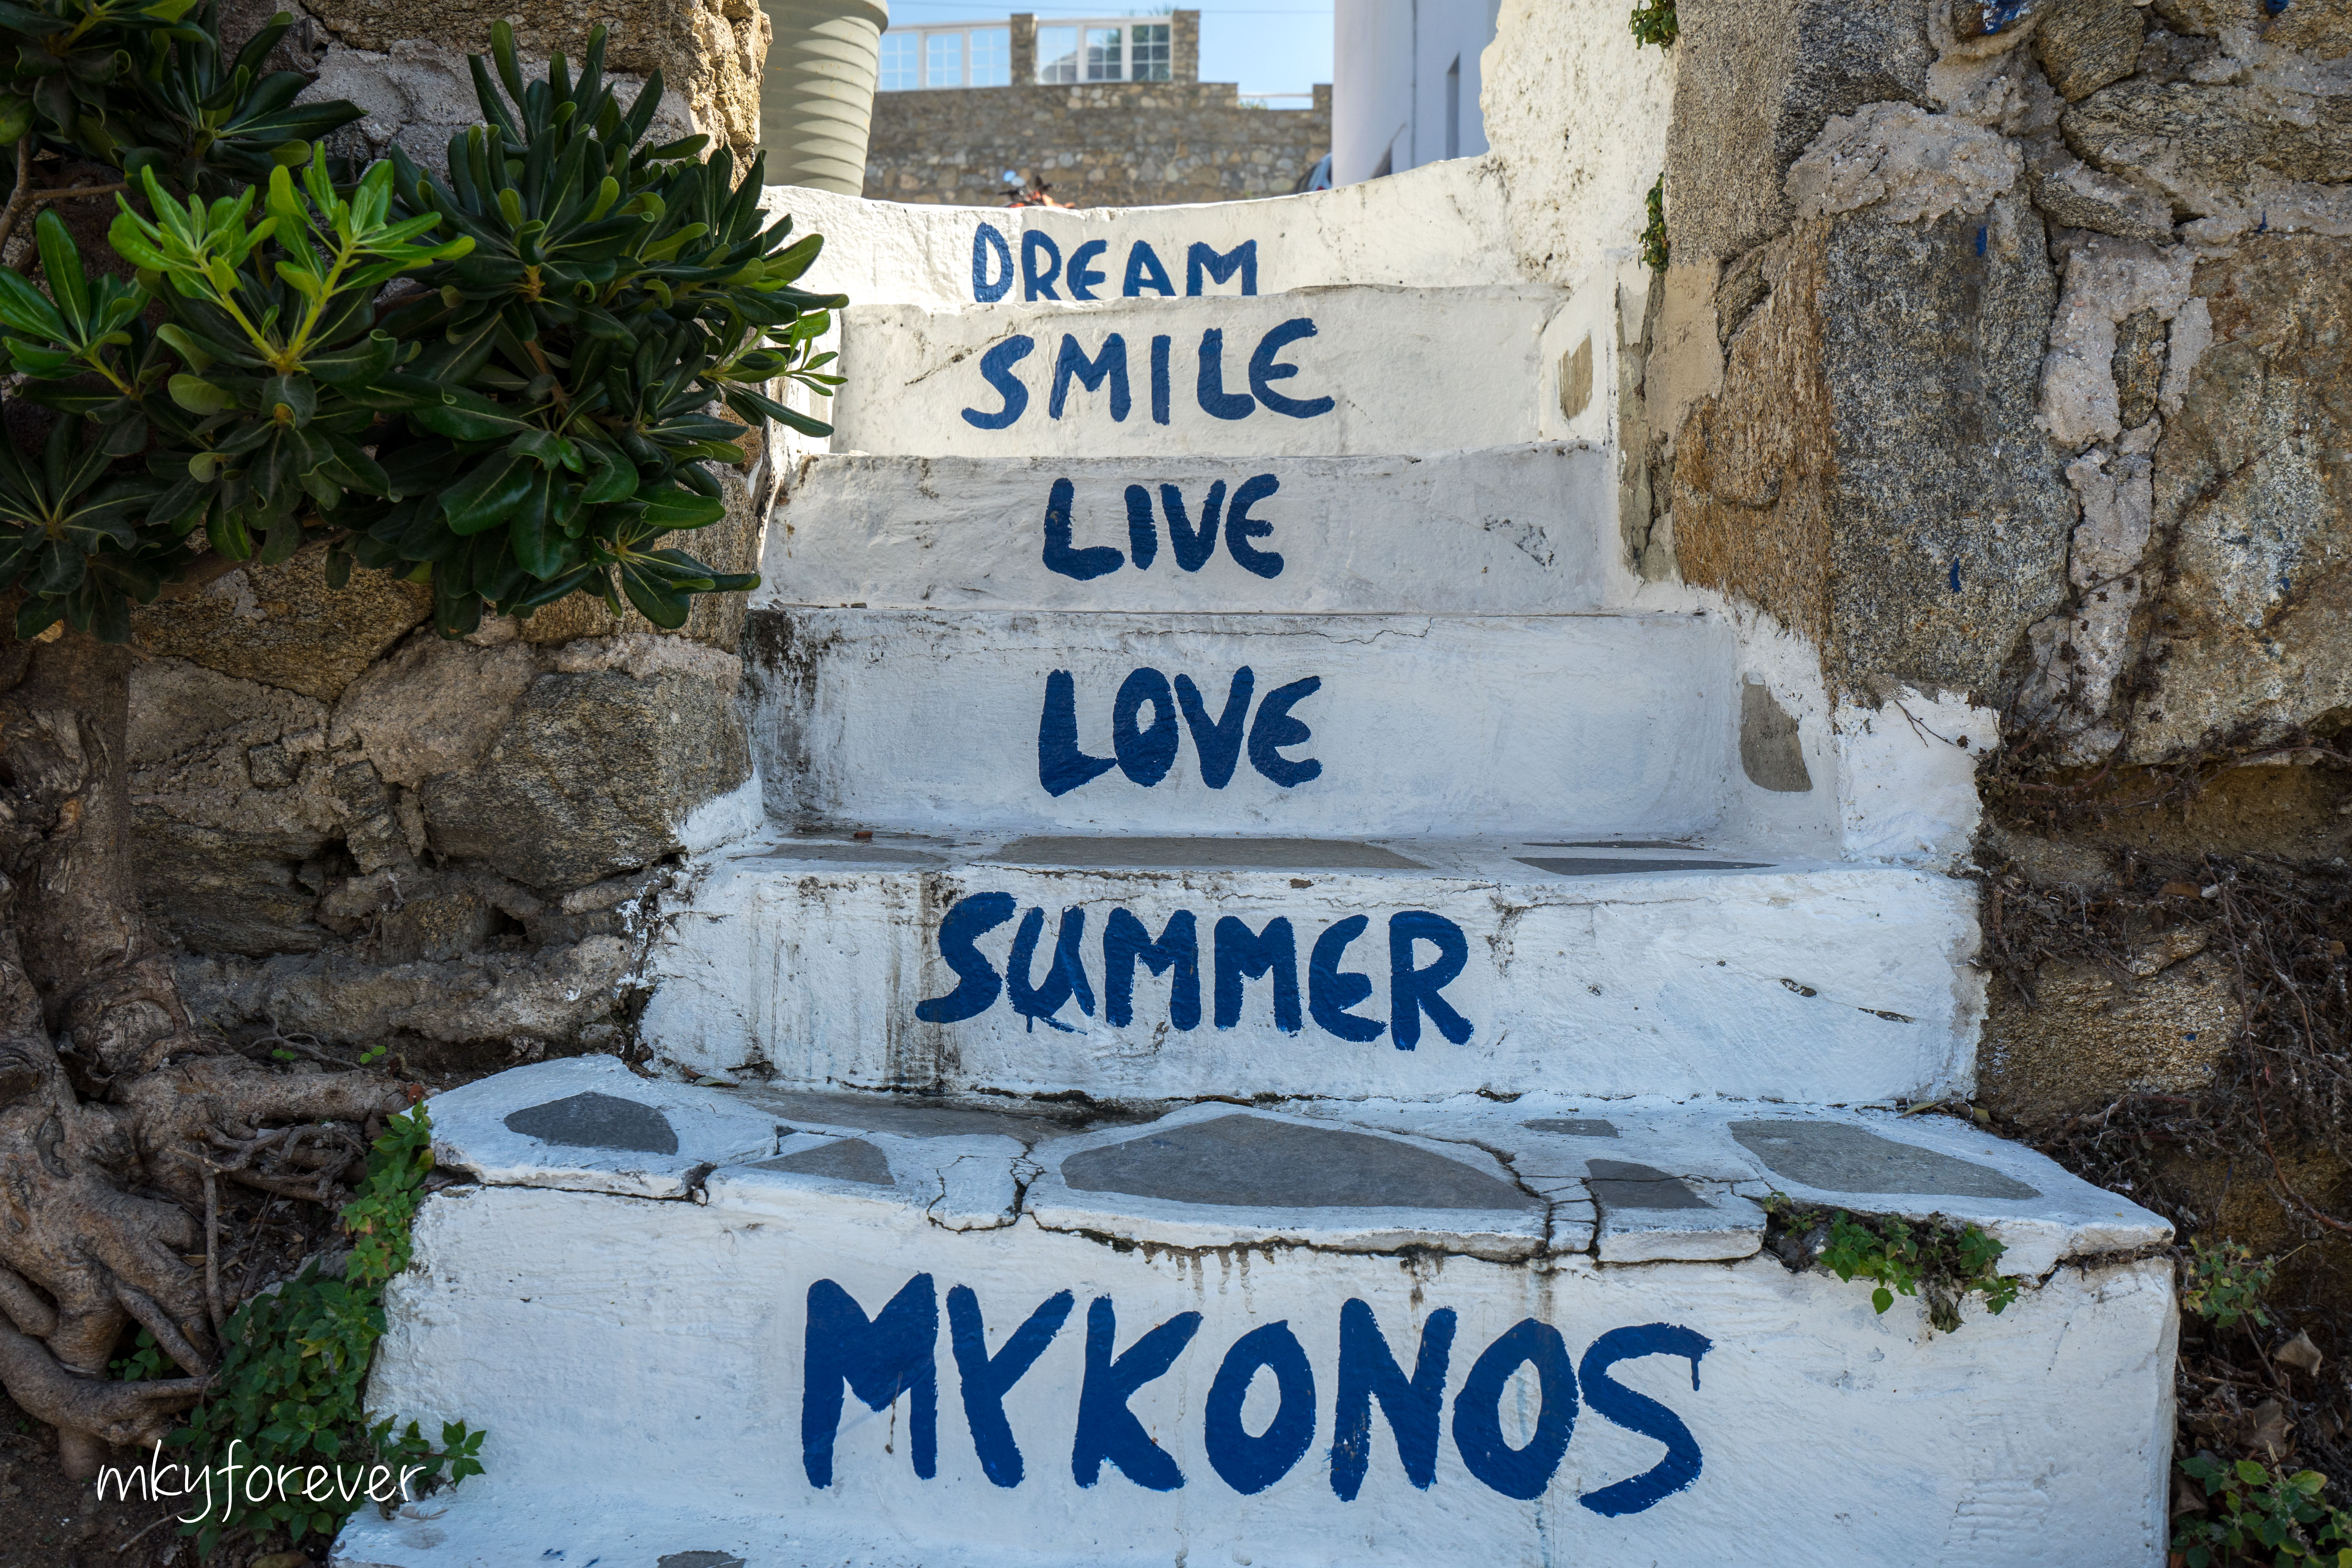 DREAM
SMILE
LIVE
LOVE
SUMMER
MYKONOS
mkyforever